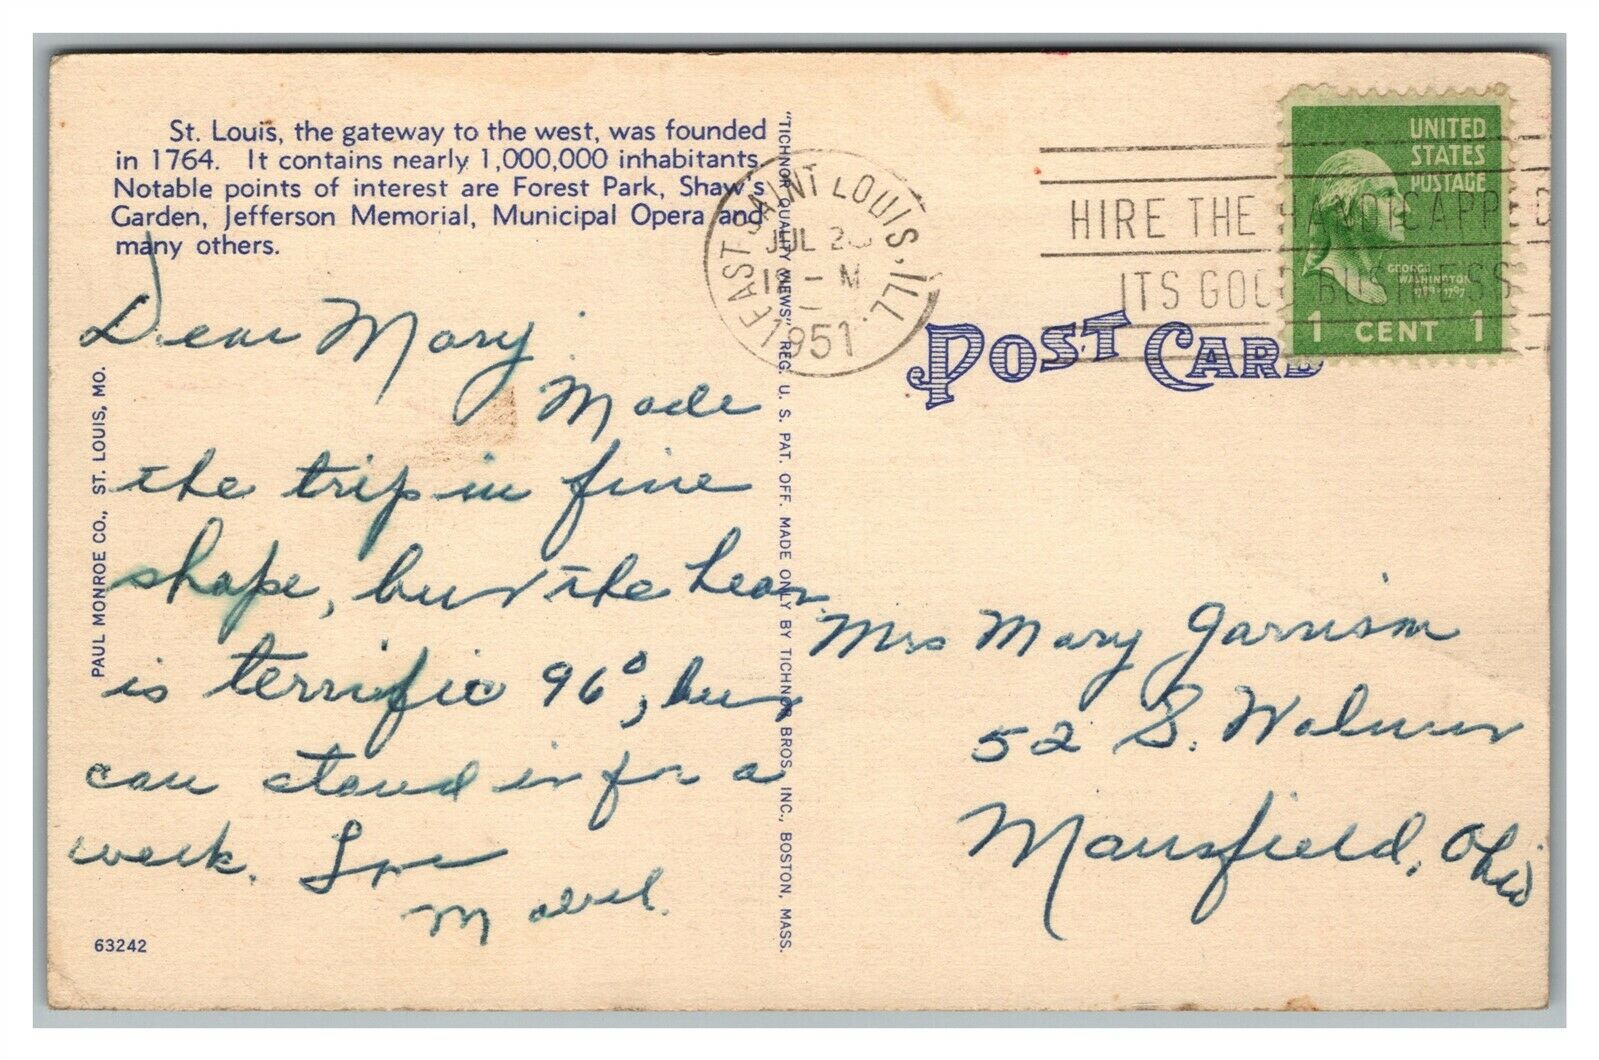 St. Louis, the gateway to the west, was founded
in 1764. It contains nearly 1,000,000 inhabitants.
Notable points of interest are Forest Park, Shaw's
Garden, Jefferson Memorial, Municipal Opera and
many others.
Dear Mary:
Made
the trip in fine
shape, but the heat
is terrific 96°, but
can stand it for a
week. Love
Mabel.
63242
PAUL MONROE CO., ST. LOUIS, MO.
"TICHNOR QUALITY VIEWS" REG. U. S. PAT. OFF. MADE ONLY BY TICHNOR BROS. INC., BOSTON, MASS.
EAST SAINT LOUIS, ILL.
JUL
M
1951
HIRE THE HANDICAPPED
ITS GOOD BUSINESS
UNITED
STATES
POSTAGE
GEORGE
WASHINGTON
1789-1797
1 CENT 1
POST CARD
Mrs Mary Garrison
52 S.
Mansfield, Ohio